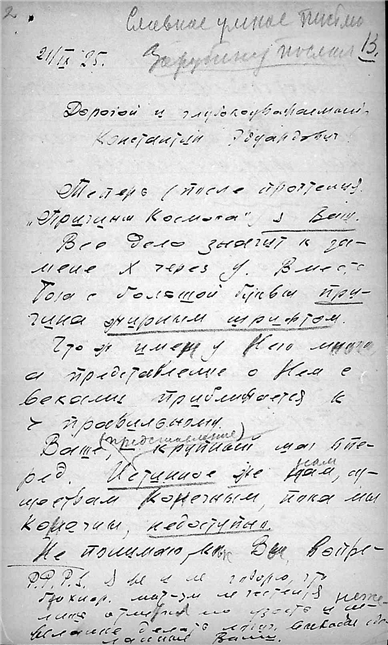 2
Славное умное письмо
Зарубину послал
13
21/IX 25.
Дорогой и глубокоуважаемый
Константин Эдуардович.
Теперь (после прочтения
„Причины Космоса“) я Ваш.
Все дело значит к за-
мене X через У. Вместо
Бога с большой буквы при-
чина жирным шрифтом.
Что ж имен у Него много
а представление о Нем с
веками приближается к
правильному.
(представление)
Ваше крупный шаг впе-
ред. Истинное же нам, су-
ществам конечным, пока мы
конечны, недоступно.
Не понимаю, Вы вопре-
P.P.P.S. Я не говорю, что